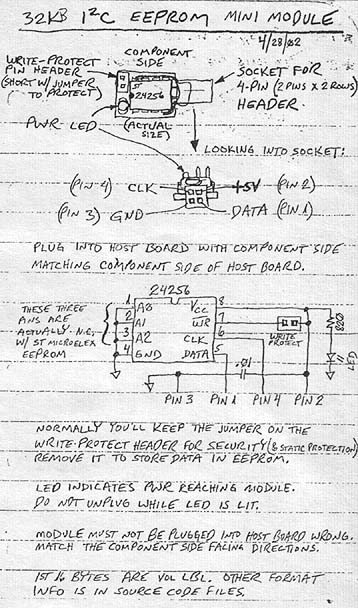 32KB I²C EEPROM MINI MODULE
4/28/02
WRITE-PROTECT
PIN HEADER
(SHORT W/ JUMPER
TO PROTECT)
COMPONENT
SIDE
ST
24256
(ACTUAL
SIZE)
SOCKET FOR
4-PIN (2 PINS X 2 ROWS)
HEADER.
PWR LED
LOOKING INTO SOCKET:
(PIN 4) CLK
+5V (PIN 2)
(PIN 3) GND
DATA (PIN 1)
PLUG INTO HOST BOARD WITH COMPONENT SIDE
MATCHING COMPONENT SIDE OF HOST BOARD.
24256
THESE THREE
ANS ARE
ACTUALLY N.C.
W/ ST MICROELEX
EEPROM
1 A0 VCC 8
2 A1 WR 7
3 A2 CLK 6
4 GND DATA 5
WRITE
PROTECT
820
LED
.01
PIN 3 PIN 1 PIN 4 PIN 2
NORMALLY YOU'LL KEEP THE JUMPER ON THE
WRITE-PROTECT HEADER FOR SECURITY (& STATIC PROTECTION)
REMOVE IT TO STORE DATA IN EEPROM.
LED INDICATES PWR REACHING MODULE.
DO NOT UNPLUG WHILE LED IS LIT.
MODULE MUST NOT BE PLUGGED INTO HOST BOARD WRONG.
MATCH THE COMPONENT SIDE FACING DIRECTIONS.
1ST 16 BYTES ARE VOL LBL. OTHER FORMAT
INFO IS IN SOURCE CODE FILES.